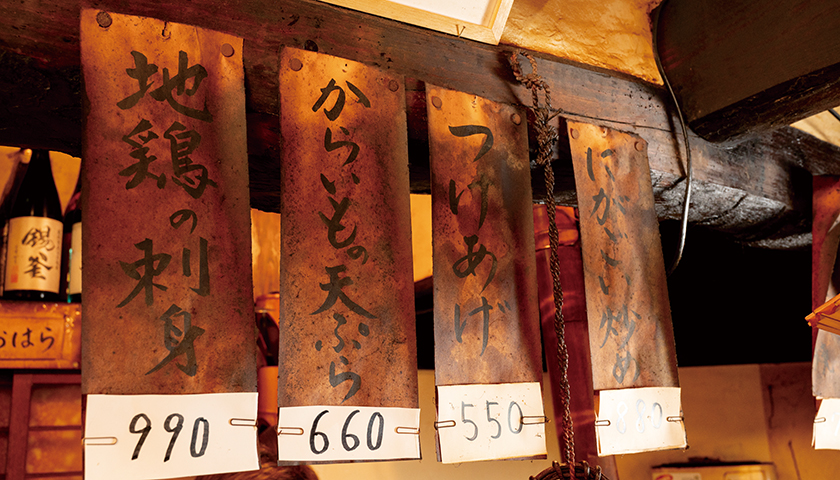 地鶏の刺身
990
からいもの天ぷら
660
つけあげ
550
にがごい炒め
880
錫釜
おはら